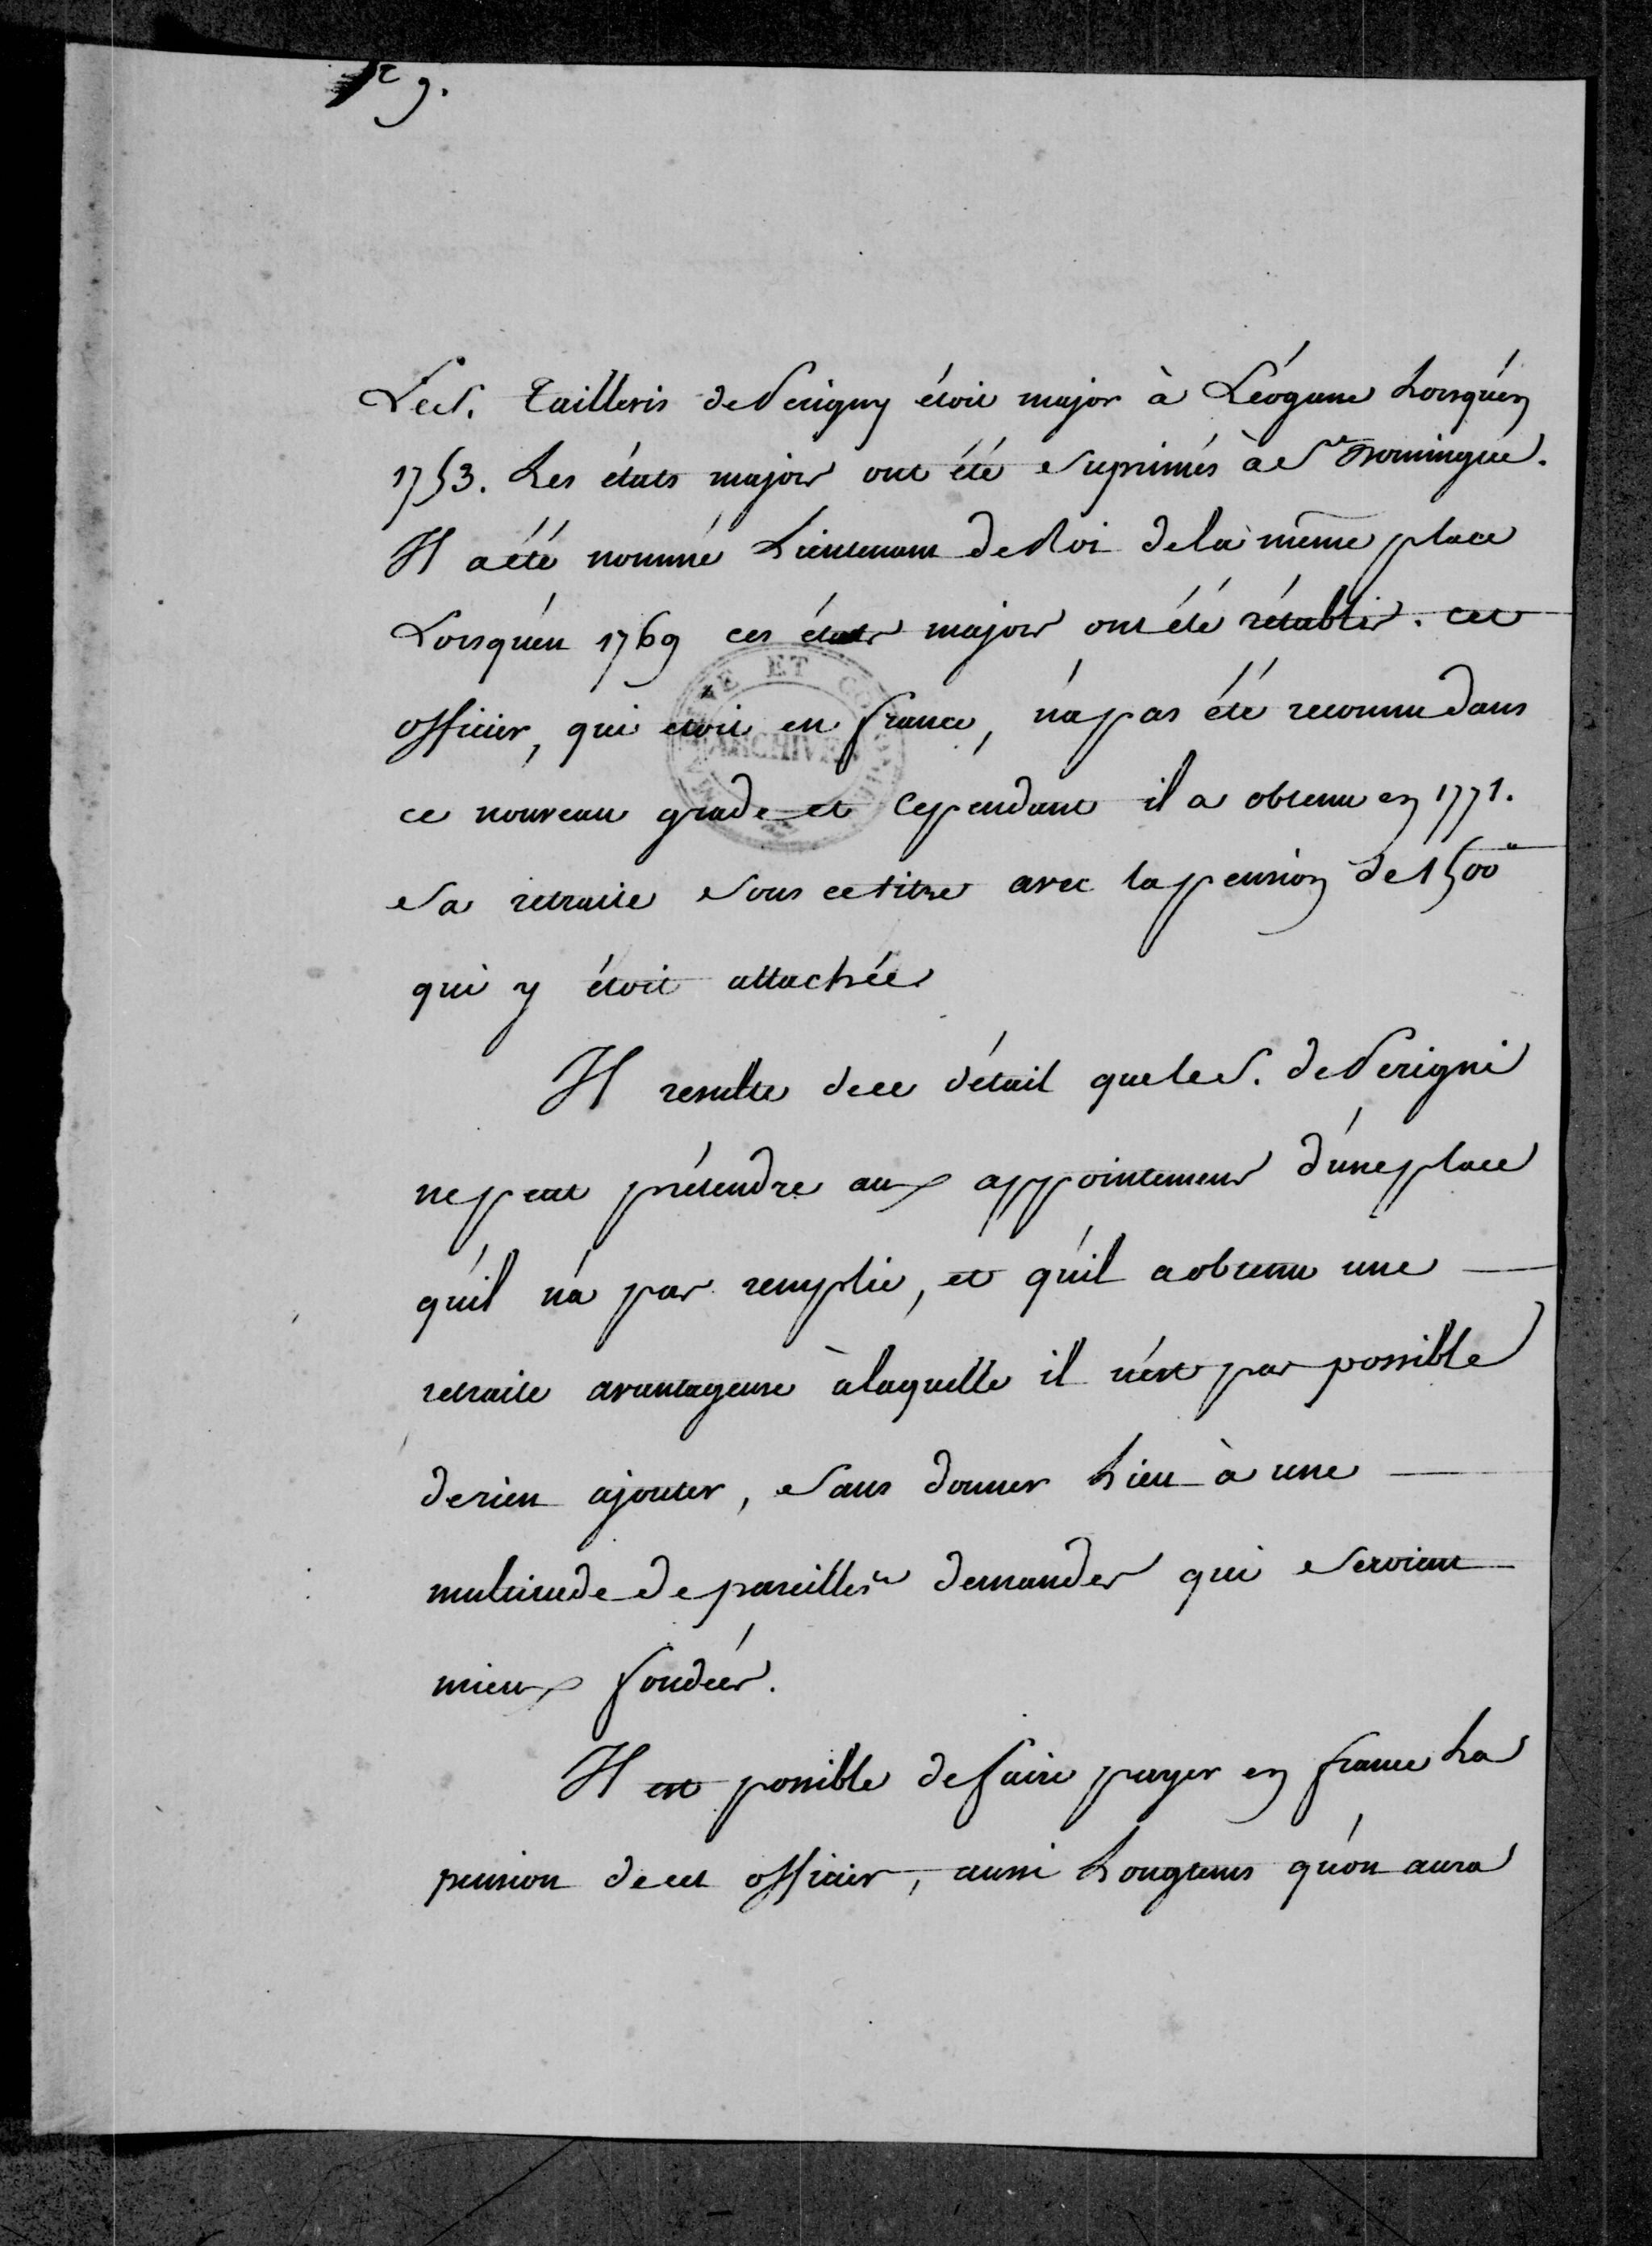 Le S. Tailleris de Perigny étoit major à Léogane Lorsqu'en
1753. Les états majors ont été suprimés à St Domingue.
Il a été nommé Lieutenant de Roi de la même place
Lorsqu'en 1769 ces états majors ont été rétablis. cet
officier, qui etoit en france, n'a pas été reconnu dans
ce nouveau grade et Cependant il a obtenu en 1771.
sa retraite sous ce titre avec la pension de 1500"
qui y étoit attachée
Il resulte de ce détail que le S. de Perigni
ne peut prétendre aux appointemens d'une place
qu'il n'a pas remplie, et qu'il a obtenu une
retraite avantageuse à laquelle il n'est pas possible
de rien ajouter, sans donner Lieu à une
multitude de pareilles demandes qui seroient
mieux fondées.
Il est possible de faire payer en france La
pension de cet officier, aussi Longtems qu'on aura
ET
ARCHIVES